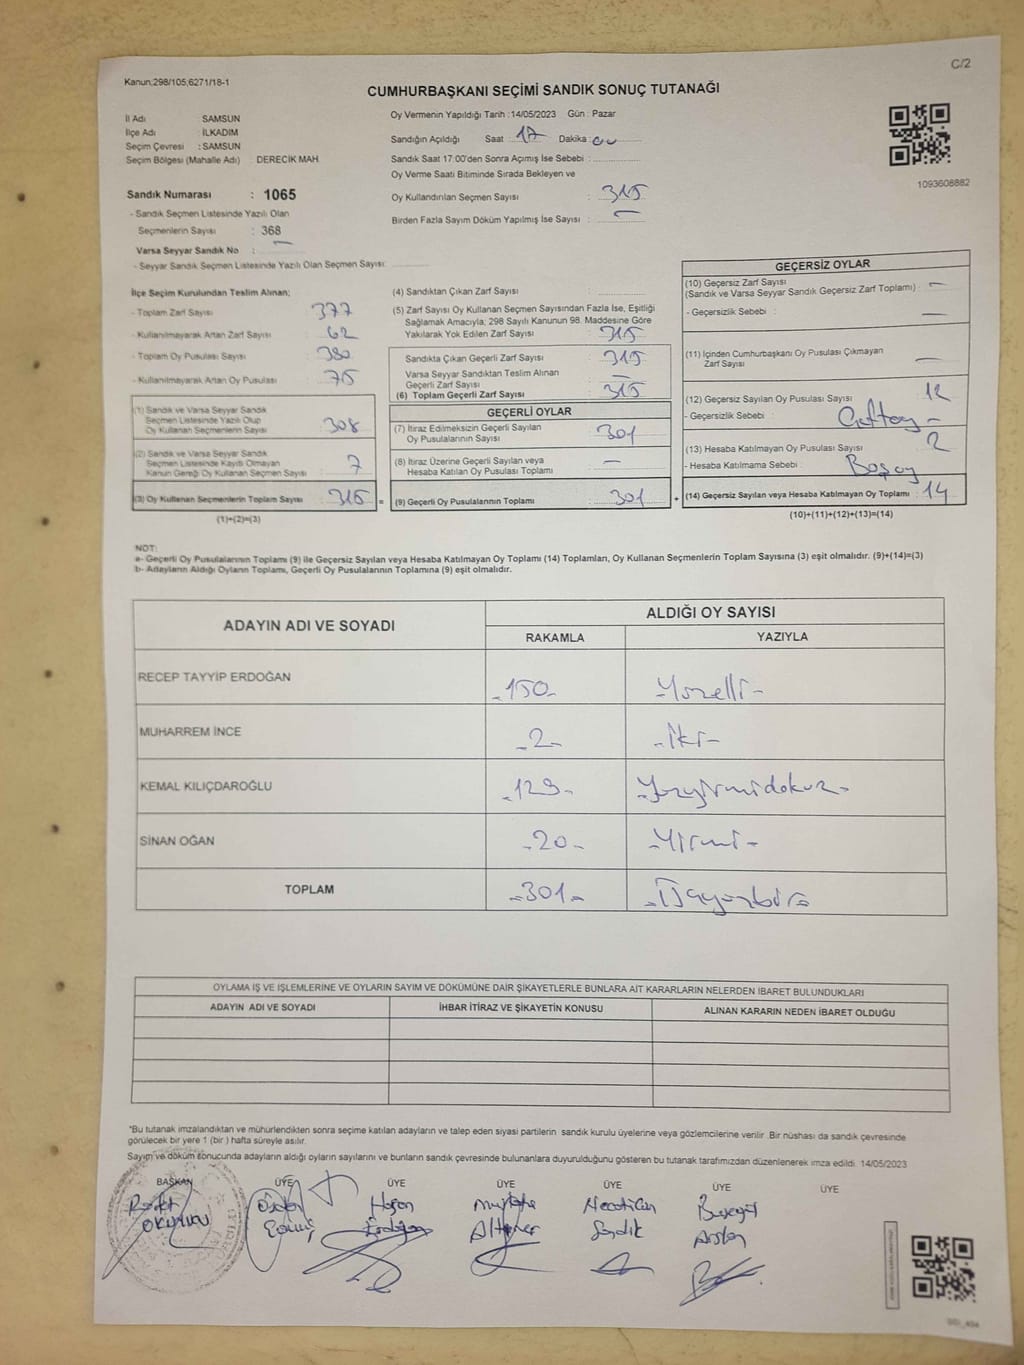 C/2
Kanun;298/105;6271/18-1
CUMHURBAŞKANI SEÇİMİ SANDIK SONUÇ TUTANAĞI
İl Adı SAMSUN
İlçe Adı : İLKADIM
Seçim Çevresi : SAMSUN
Seçim Bölgesi (Mahalle Adı) DERECİK MAH
Sandık Numarası : 1065
- Sandık Seçmen Listesinde Yazılı Olan
Seçmenlerin Sayısı : 368
Varsa Seyyar Sandık No : —
- Seyyar Sandık Seçmen Listesinde Yazılı Olan Seçmen Sayısı:
Oy Vermenin Yapıldığı Tarih :14/05/2023 Gün : Pazar
Sandığın Açıldığı Saat 17 Dakika 00
Sandık Saat 17.00'den Sonra Açımış İse Sebebi :
Oy Verme Saati Bitiminde Sırada Bekleyen ve
Oy Kullandırılan Seçmen Sayısı : 315
Birden Fazla Sayım Döküm Yapılmış İse Sayısı : —
1093608882
İlçe Seçim Kurulundan Teslim Alınan;
- Toplam Zarf Sayısı 377
- Kullanılmayarak Artan Zarf Sayısı 62
- Toplam Oy Pusulası Sayısı 380
- Kullanılmayarak Artan Oy Pusulası 75
(1) Sandık ve Varsa Seyyar Sandık
Seçmen Listesinde Yazılı Olup
Oy Kullanan Seçmenlerin Sayısı 308
(2) Sandık ve Varsa Seyyar Sandık
Seçmen Listesinde Kaydı Olmayan
Kanun Gereği Oy Kullanan Seçmen Sayısı 7
(3) Oy Kullanan Seçmenlerin Toplam Sayısı 315 =
(1)+(2)=(3)
(4) Sandıktan Çıkan Zarf Sayısı :
(5) Zarf Sayısı Oy Kullanan Seçmen Sayısından Fazla İse, Eşitliği
Sağlamak Amacıyla; 298 Sayılı Kanunun 98. Maddesine Göre
Yakılarak Yok Edilen Zarf Sayısı : 315
Sandıkta Çıkan Geçerli Zarf Sayısı : 315
Varsa Seyyar Sandıktan Teslim Alınan
Geçerli Zarf Sayısı : —
(6) Toplam Geçerli Zarf Sayısı : 315
GEÇERLİ OYLAR
(7) İtiraz Edilmeksizin Geçerli Sayılan
Oy Pusulalarının Sayısı : 301
(8) İtiraz Üzerine Geçerli Sayılan veya
Hesaba Katılan Oy Pusulası Toplamı : —
(9) Geçerli Oy Pusulalarının Toplamı : 301 +
GEÇERSİZ OYLAR
(10) Geçersiz Zarf Sayısı
(Sandık ve Varsa Seyyar Sandık Geçersiz Zarf Toplamı) : —
- Geçersizlik Sebebi : —
(11) İçinden Cumhurbaşkanı Oy Pusulası Çıkmayan
Zarf Sayısı : —
(12) Geçersiz Sayılan Oy Pusulası Sayısı : 12
- Geçersizlik Sebebi :
(13) Hesaba Katılmayan Oy Pusulası Sayısı : 2
- Hesaba Katılmama Sebebi : Boşoy
(14) Geçersiz Sayılan veya Hesaba Katılmayan Oy Toplamı : 14
(10)+(11)+(12)+(13)=(14)
NOT:
a- Geçerli Oy Pusulalarının Toplamı (9) ile Geçersiz Sayılan veya Hesaba Katılmayan Oy Toplamı (14) Toplamları, Oy Kullanan Seçmenlerin Toplam Sayısına (3) eşit olmalıdır. (9)+(14)=(3)
b- Adayların Aldığı Oyların Toplamı, Geçerli Oy Pusulalarının Toplamına (9) eşit olmalıdır.
ADAYIN ADI VE SOYADI ALDIĞI OY SAYISI
RAKAMLA YAZIYLA
RECEP TAYYİP ERDOĞAN -150- -Yüzelli-
MUHARREM İNCE -2- -İki-
KEMAL KILIÇDAROĞLU -129- -Yüzyirmidokuz-
SİNAN OĞAN -20- -Yirmi-
TOPLAM -301- -Üçyüzbir-
OYLAMA İŞ VE İŞLEMLERİNE VE OYLARIN SAYIM VE DÖKÜMÜNE DAİR ŞİKAYETLERLE BUNLARA AİT KARARLARIN NELERDEN İBARET BULUNDUKLARI
ADAYIN ADI VE SOYADI İHBAR İTİRAZ VE ŞİKAYETİN KONUSU ALINAN KARARIN NEDEN İBARET OLDUĞU
*Bu tutanak imzalandıktan ve mühürlendikten sonra seçime katılan adayların ve talep eden siyasi partilerin sandık kurulu üyelerine veya gözlemcilerine verilir .Bir nüshası da sandık çevresinde
görülecek bir yere 1 (bir ) hafta süreyle asılır.
Sayım ve döküm sonucunda adayların aldığı oyların sayılarını ve bunların sandık çevresinde bulunanlara duyurulduğunu gösteren bu tutanak tarafımızdan düzenlenerek imza edildi. 14/05/2023
BAŞKAN ÜYE ÜYE ÜYE ÜYE ÜYE ÜYE
Hasan Mustafa
OKUMUŞ Erdoğan Sandık Arslan